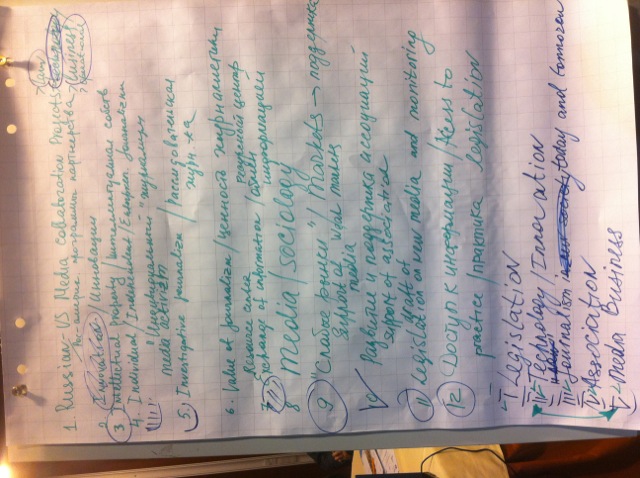 1. Russian-US Media Collaboration Projects
Рос-америк. программы партнерства
>Law
>business
2. Innovation / Инновации
3 Intellectual Property / интеллектуальная собств
4. Individual / Independent / Citizen journalism
"Индивидуальный" журнализм
media activism
5. Investigative journalism / расследовательская
журн-ка
6. Value of journalism / ценность журналистики
Resource center Ресурсный центр
7. Exchange of information / обмен информацией
8 Media / sociology
9 "Слабые рынки" / Markets → поддержка
Support of weak markets
media
10 Развитие и поддержка ассоциаций
Support of associations
draft of
11 Legislation on new media and monitoring
12 Доступ к информации / Access to
practice / практика legislation
I Legislation
II Technology / Innovation
III Journalism: today and tomorrow
IV Association
V Media Business